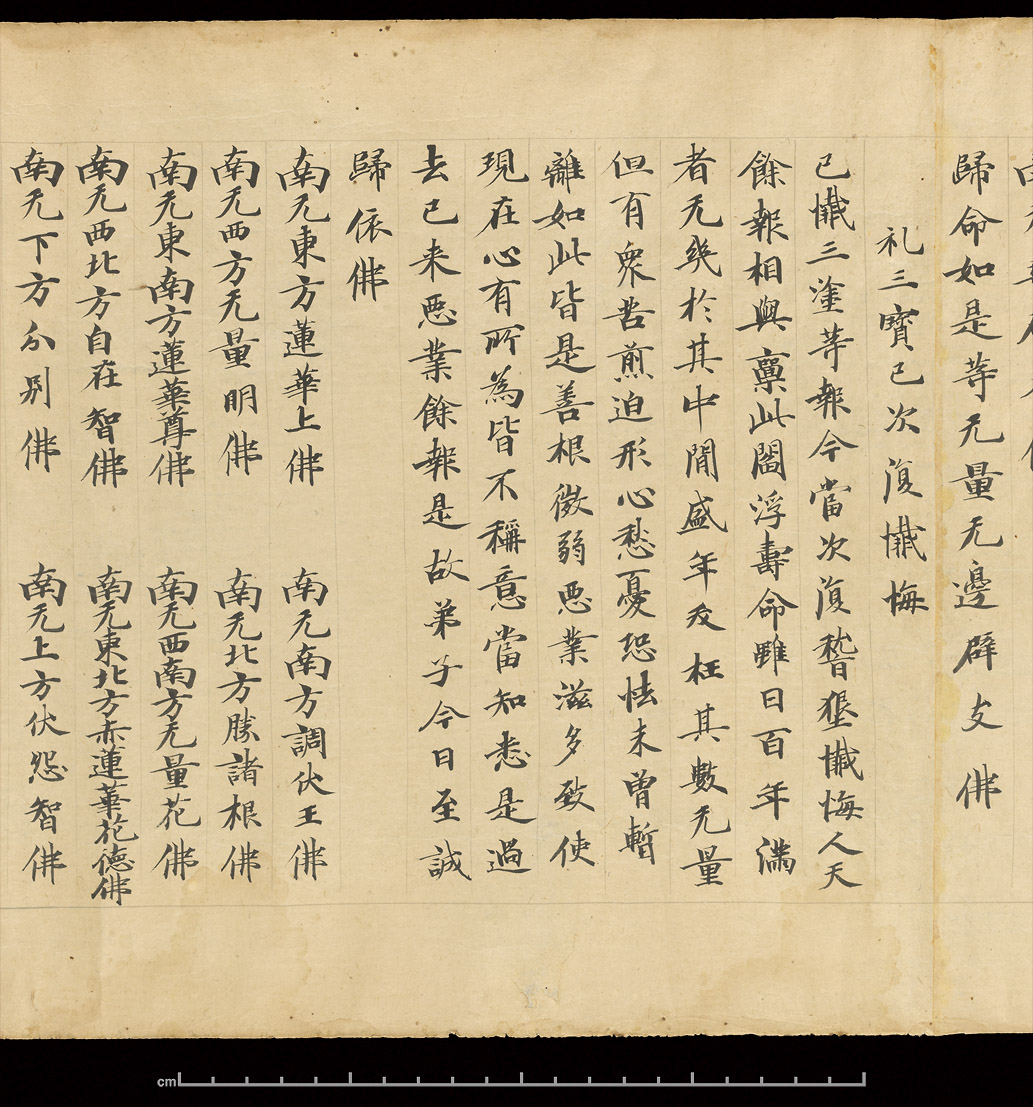 歸命如是等无量无邊辟支佛
礼三寶已次復懺悔
已懺三塗等報今當次復稽懇懺悔人天
餘報相與稟此閻浮壽命雖曰百年滿
者无幾於其中閒盛年夭枉其數无量
但有眾苦煎迫形心愁憂恐怯未曾暫
離如此皆是善根微弱惡業滋多致使
現在心有所為皆不稱意當知悉是過
去已来惡業餘報是故弟子今日至誠
歸依佛
南无東方蓮華上佛 南无南方調伏王佛
南无西方无量明佛 南无北方勝諸根佛
南无東南方蓮華尊佛 南无西南方无量花佛
南无西北方自在智佛 南无東北方赤蓮華花德佛
南无下方分别佛 南无上方伏怨智佛